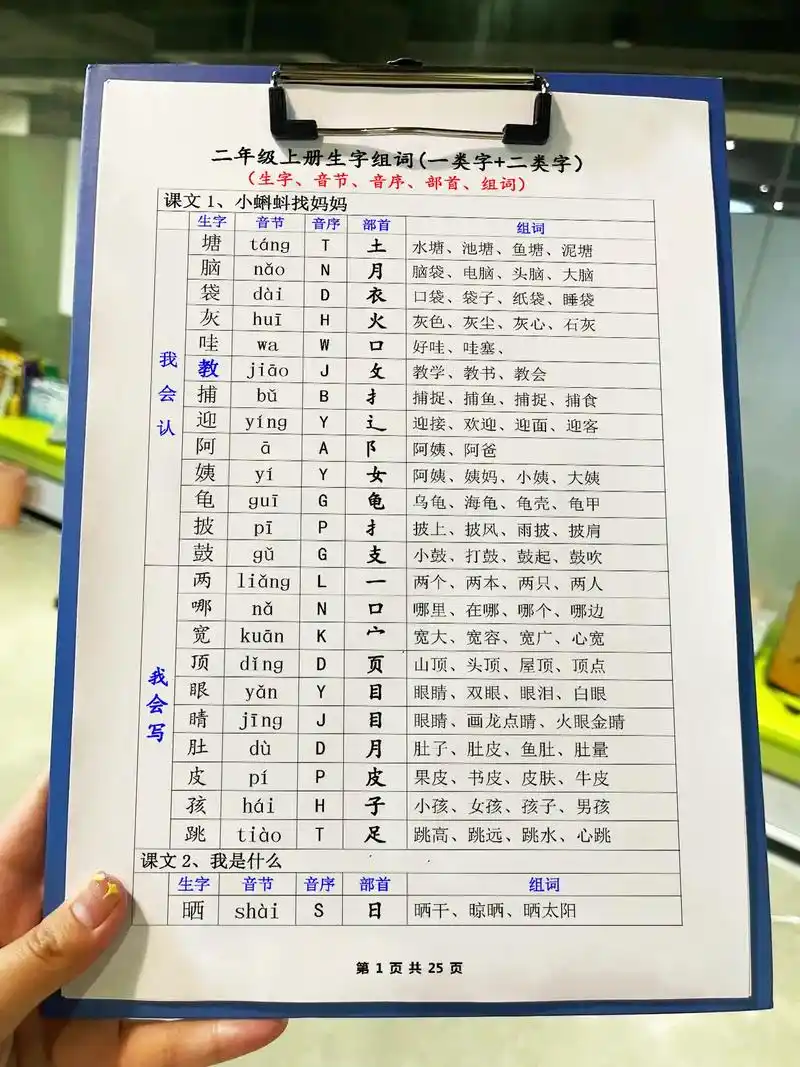 二年级上册生字组词(一类字+二类字)
(生字、音节、音序、部首、组词)
课文 1、小蝌蚪找妈妈
生字 音节 音序 部首 组词
我会认
塘 táng T 土 水塘、池塘、鱼塘、泥塘
脑 nǎo N 月 脑袋、电脑、头脑、大脑
袋 dài D 衣 口袋、袋子、纸袋、睡袋
灰 huī H 火 灰色、灰尘、灰心、石灰
哇 wa W 口 好哇、哇塞、
教 jiāo J 攵 教学、教书、教会
捕 bǔ B 扌 捕捉、捕鱼、捕捉、捕食
迎 yíng Y 辶 迎接、欢迎、迎面、迎客
阿 ā A 阝 阿姨、阿爸
姨 yí Y 女 阿姨、姨妈、小姨、大姨
龟 guī G 龟 乌龟、海龟、龟壳、龟甲
披 pī P 扌 披上、披风、雨披、披肩
鼓 gǔ G 支 小鼓、打鼓、鼓起、鼓吹
我会写
两 liǎng L 一 两个、两本、两只、两人
哪 nǎ N 口 哪里、在哪、哪个、哪边
宽 kuān K 宀 宽大、宽容、宽广、心宽
顶 dǐng D 页 山顶、头顶、屋顶、顶点
眼 yǎn Y 目 眼睛、双眼、眼泪、白眼
睛 jīng J 目 眼睛、画龙点睛、火眼金睛
肚 dù D 月 肚子、肚皮、鱼肚、肚量
皮 pí P 皮 果皮、书皮、皮肤、牛皮
孩 hái H 子 小孩、女孩、孩子、男孩
跳 tiào T 足 跳高、跳远、跳水、心跳
课文 2、我是什么
生字 音节 音序 部首 组词
晒 shài S 日 晒干、晾晒、晒太阳
第 1 页 共 25 页